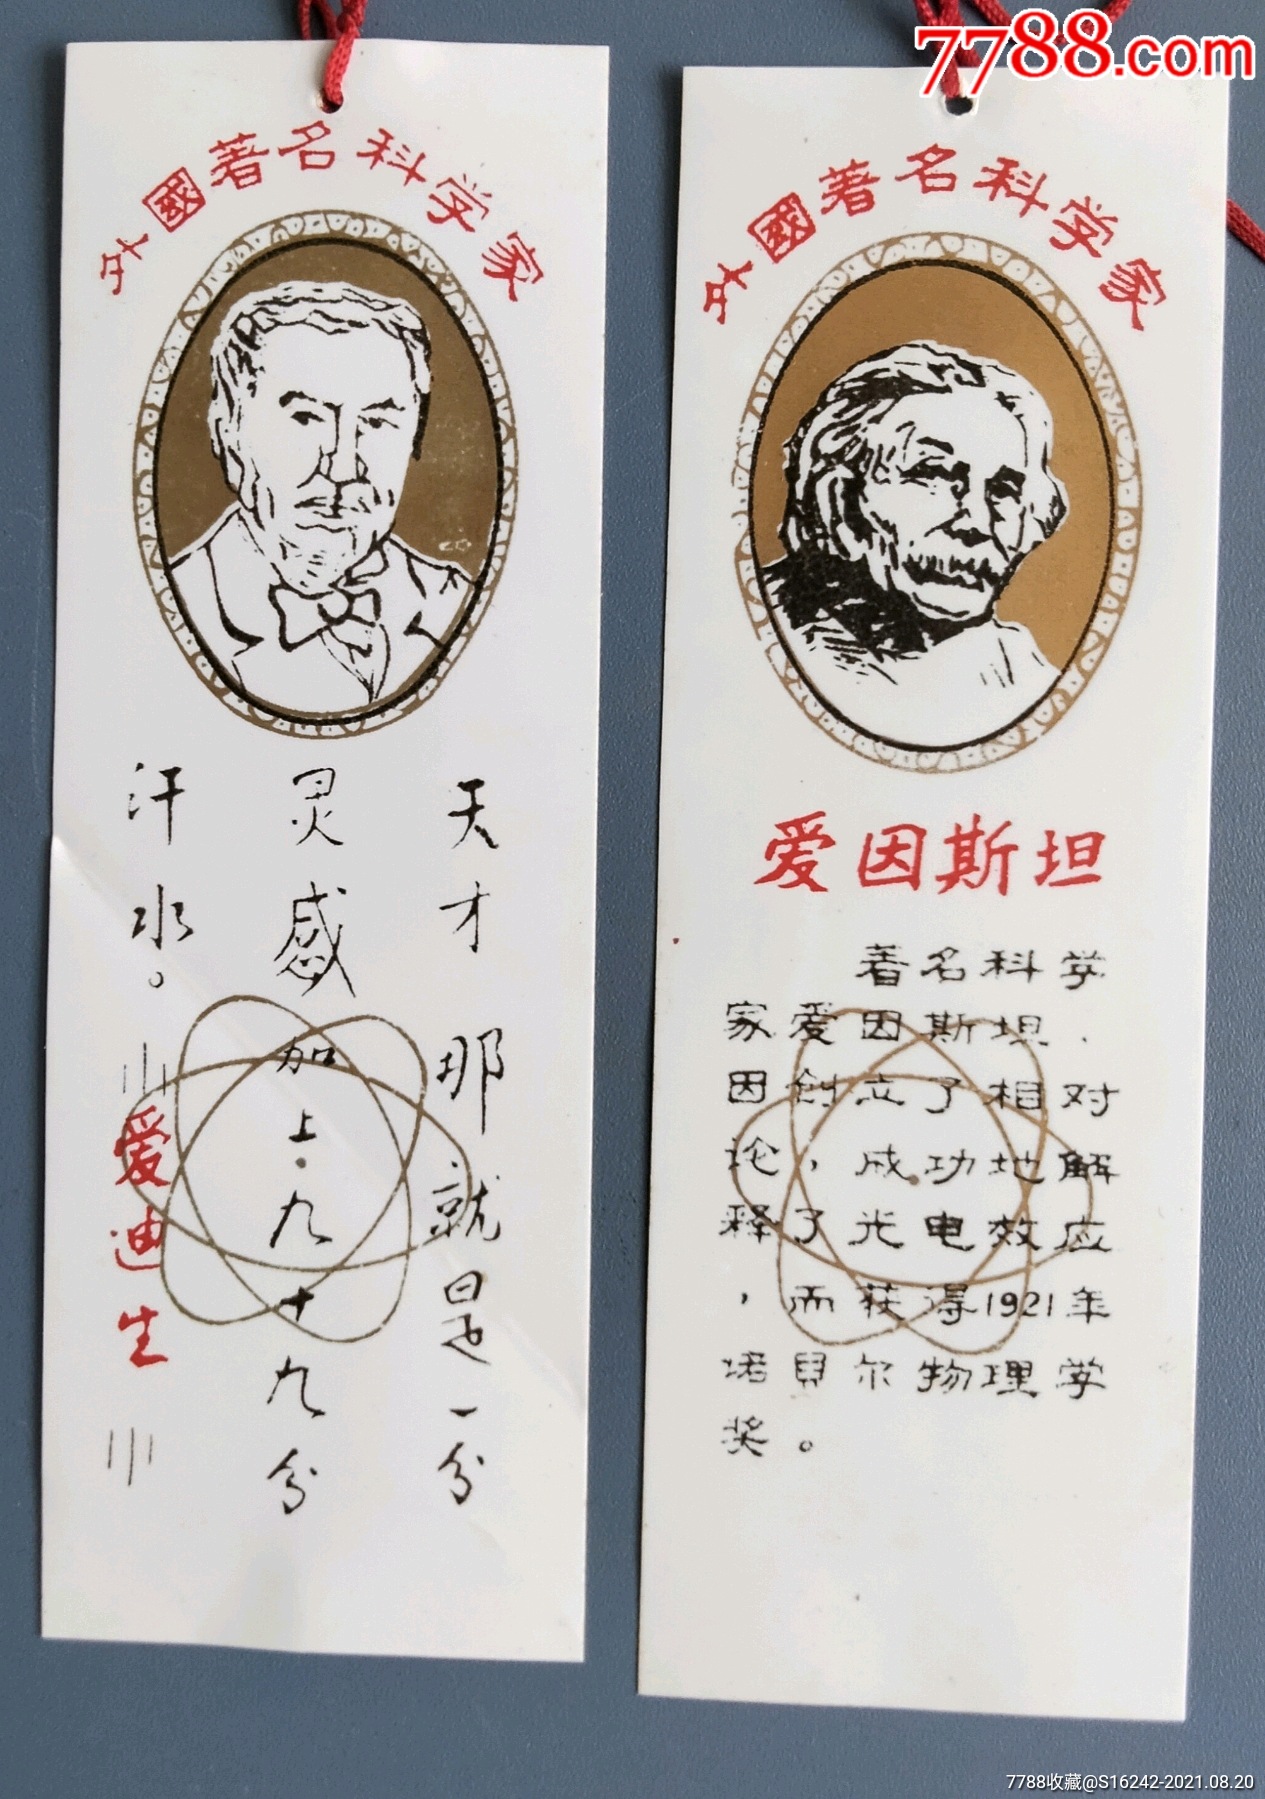 7788.com
外國著名科学家
天才那就是一分
灵感加上九十九分
汗水。
爱迪生
外國著名科学家
爱因斯坦
著名科学
家爱因斯坦.
因创立了相对
论,成功地解
释了光电效应
,而获得1921年
诺贝尔物理学
奖。
7788收藏@S16242-2021.08.20